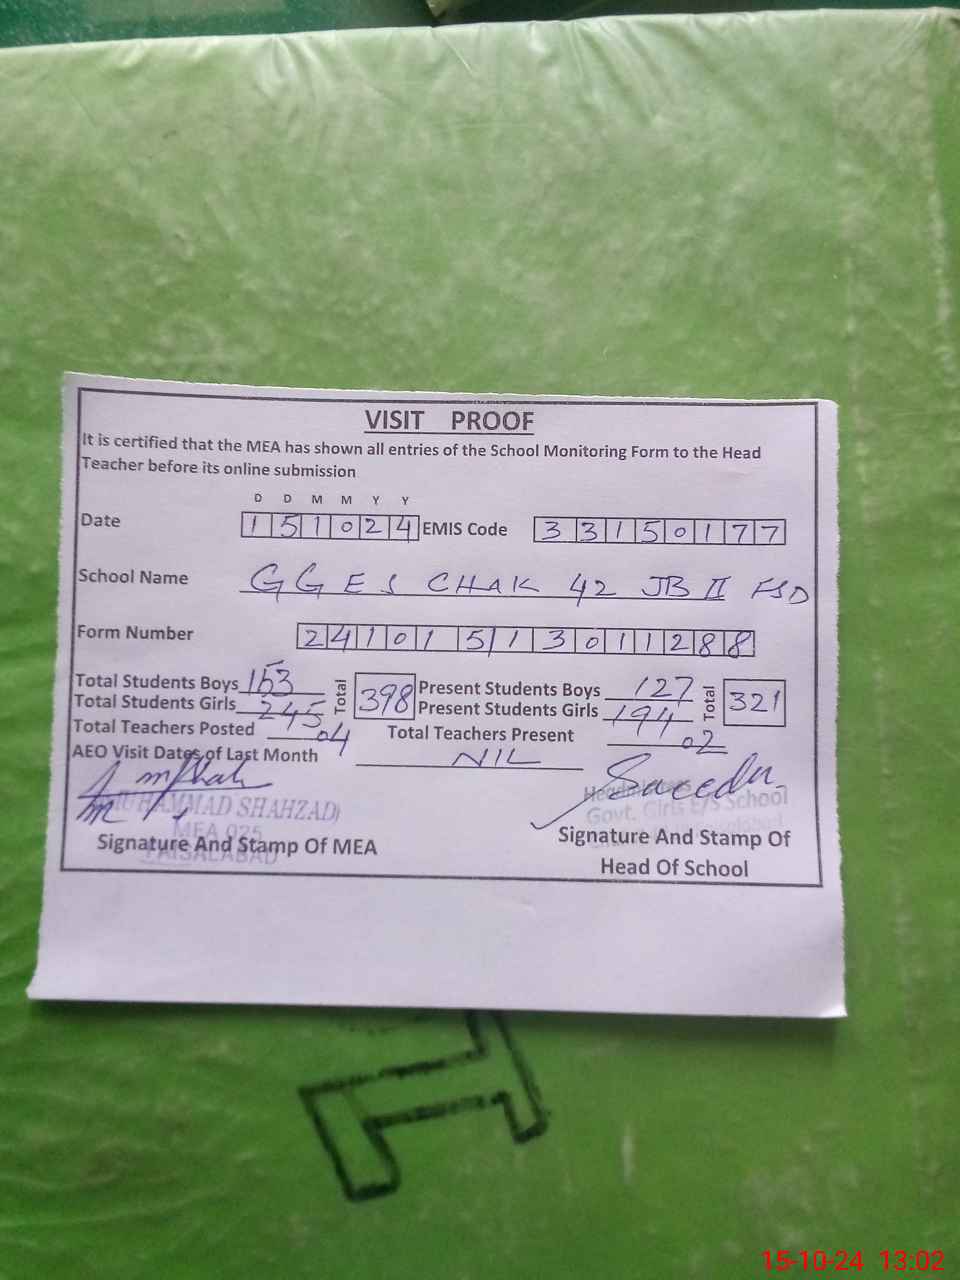 VISIT PROOF
It is certified that the MEA has shown all entries of the School Monitoring Form to the Head
Teacher before its online submission
D D M M Y Y
Date 151024 EMIS Code 33150177
School Name GGES CHAK 42 JB II FSD
Form Number 24101513011288
Total Students Boys 153 Total 398 Present Students Boys 127 Total 321
Total Students Girls 245 Present Students Girls 194
Total Teachers Posted 04 Total Teachers Present 02
AEO Visit Dates of Last Month NIL
(MUHAMMAD SHAHZAD)
MEA 025
FAISALABAD
Signature And Stamp Of MEA
Saeeda
Govt. Girls E/S School
Signature And Stamp Of
Head Of School
15-10-24 13:02